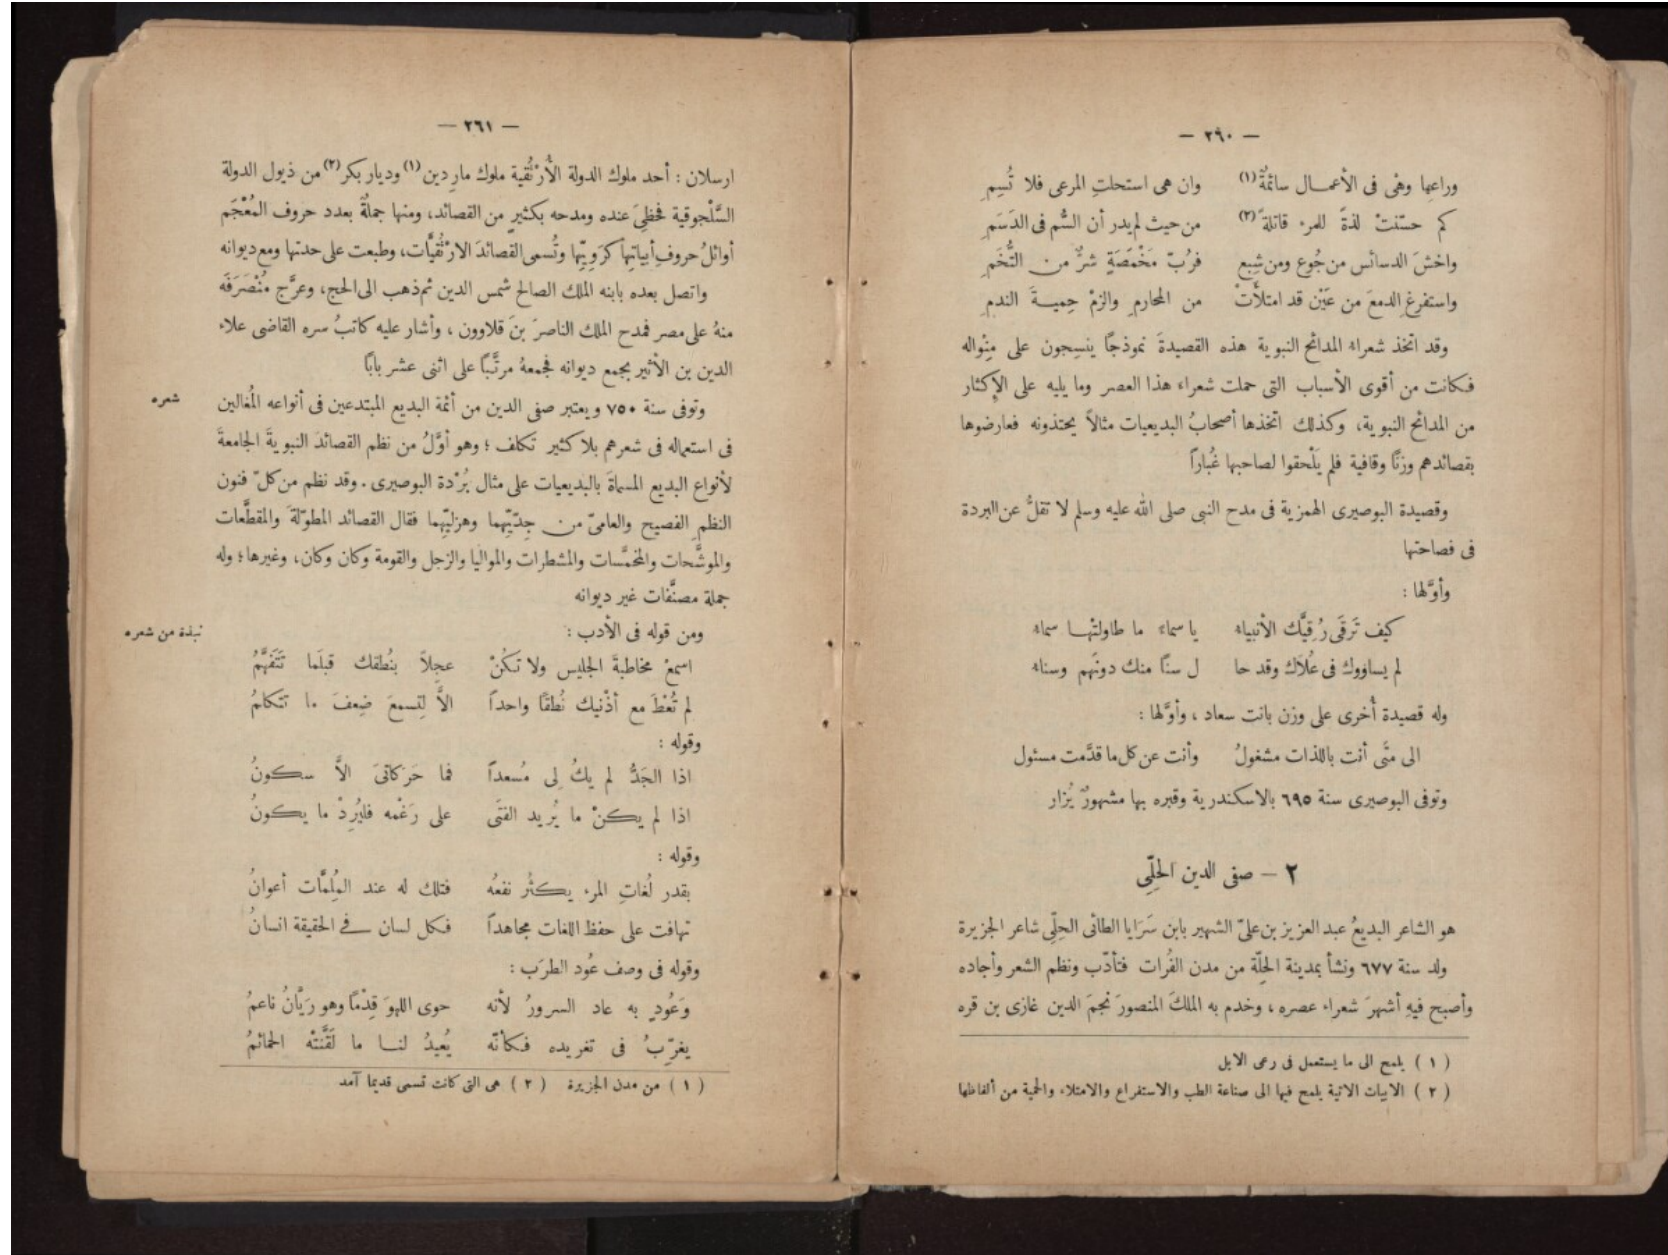 — ٢٩٠ —
وراعِها وهْى فى الأعمـال سائمَةٌ (١) وان هى استحلتِ المرعى فلا تُسِمِ
كم حسّنتْ لذةً للمرء قاتلةً (٢) من حيث لم يدر أن السُّم فى الدَسَمِ
واخشَ الدسائس من جُوع ومن شِبع فرُبّ مَخْمَصَةٍ شرٌّ من التُّخَمِ
واستفرغِ الدمعَ من عَيْن قد امتلأتْ من المحارمِ والزمْ حِميـةَ الندمِ
وقد اتخذ شعراء المدائح النبوية هذه القصيدةَ نموذجًا ينسِجون على مِنْواله
فكانت من أقوى الأسباب التى حملت شعراء هذا العصر وما يليه على الإكثار
من المدائح النبوية، وكذلك اتخذها أصحابُ البديعيات مثالاً يحتذونه فعارضوها
بقصائدهم وزنًا وقافية فلم يَلْحقوا لصاحبها غُباراً
وقصيدة البوصيرى الهمزية فى مدح النبى صلى الله عليه وسلم لا تقلُّ عن البردة
فى فصاحتها
وأوّلها :
كيف تَرقَى رُقِيَّك الأنبياء يا سماءً ما طاولتْهـا سماء
لم يساووك فى عُلَاك وقد حا ل سنًا منك دونهم وسناء
وله قصيدة أُخرى على وزن بانت سعاد ، وأوّلها :
الى متَى أنت باللذات مشغولُ وأنت عن كل ما قدَّمت مسئول
وتوفى البوصيرى سنة ٦٩٥ بالاسكندرية وقبره بها مشهورٌ يُزار
٢ — صفى الدين الحِلِّى
هو الشاعر البديعُ عبد العزيز بن علىّ الشهير بابن سَرَايا الطائى الحِلِّى شاعر الجزيرة
ولد سنة ٦٧٧ ونشأ بمدينة الحِلّة من مدن الفُرات فتأدّب ونظم الشعر وأجاده
وأصبح فيهِ أشهرَ شعراء عصره ، وخدم به الملكَ المنصورَ نجمَ الدين غازى بن قره
( ١ ) يلمح الى ما يستعمل فى رعى الابل
( ٢ ) الابيات الاتية يلمح فيها الى صناعة الطب والاستفراغ والامتلاء والحمية من ألفاظها
— ٢٦١ —
ارسلان : أحد ملوك الدولة الأُرْتُقية ملوك مارِدين (١) وديار بكر (٢) من ذيول الدولة
السَّلْجوقية فحظِىَ عنده ومدحه بكثيرٍ من القصائد، ومنها جملةٌ بعدد حروف المُعْجَم
أوائلُ حروفِ أبياتِها كرَوِيِّها وتُسمى القصائدَ الارْتُقيَّات، وطبعت على حدتها ومع ديوانه
واتصل بعده بابنه الملك الصالح شمس الدين ثم ذهب الى الحج، وعرَّج مُنْصَرَفَه
منهُ على مصر فمدح الملك الناصرَ بنَ قلاوون ، وأشار عليه كاتبُ سره القاضى علاء
الدين بن الأثير بجمع ديوانه فجمعهُ مرتَّبًا على اثنى عشر بابًا
شعره
وتوفى سنة ٧٥٠ ويعتبر صفى الدين من أئمة البديع المبتدعين فى أنواعه المُغالين
فى استعماله فى شعرهم بلا كثير تكلف ؛ وهو أوّلُ من نظم القصائدَ النبويةَ الجامعةَ
لأنواع البديع المسماةَ بالبديعيات على مثال بُرْدة البوصيرى . وقد نظم من كلّ فنون
النظمِ الفصيحِ والعامىّ من جِدّيّهما وهزليّهِما فقال القصائد المطوّلةَ والمقطَّعات
والموشَّحات والمخمَّسات والمشطرات والمواليا والزجل والقومة وكان وكان، وغيرها ؛ وله
جملة مصنَّفات غير ديوانه
نبذة من شعره
ومن قوله فى الأدب :
اسمعْ مخاطبةَ الجليس ولا تكُنْ عجِلاً بنُطقك قبلَما تَتَفهَّمُ
لم تُعْطَ مع أذْنيك نُطقًا واحداً الاَّ لِتسمعَ ضِعفَ ما تتكلمُ
وقوله :
اذا الجَدُّ لم يكُ لِى مُسعداً فما حَرَكاتىَ الاَّ سكونُ
اذا لم يكنْ ما يُريد الفتَى على رَغْمه فليُرِدْ ما يكونُ
وقوله :
بقدر لُغاتِ المرء يكثُر نفعُه فتلك له عند المُلِمَّات أعوانُ
تهافت على حفظ اللغات مجاهداً فكل لسان فى الحقيقة انسانُ
وقوله فى وصف عُود الطرَب :
وَعُودٍ به عاد السرورُ لأنه حوى اللهوَ قِدْمًا وهو رَيَّانُ ناعمُ
يغرّبُ فى تغريده فكأنّه يُعيدُ لنـا ما لَقَّنَتْه الحمائمُ
( ١ ) من مدن الجزيرة ( ٢ ) هى التى كانت تسمى قديما آمد